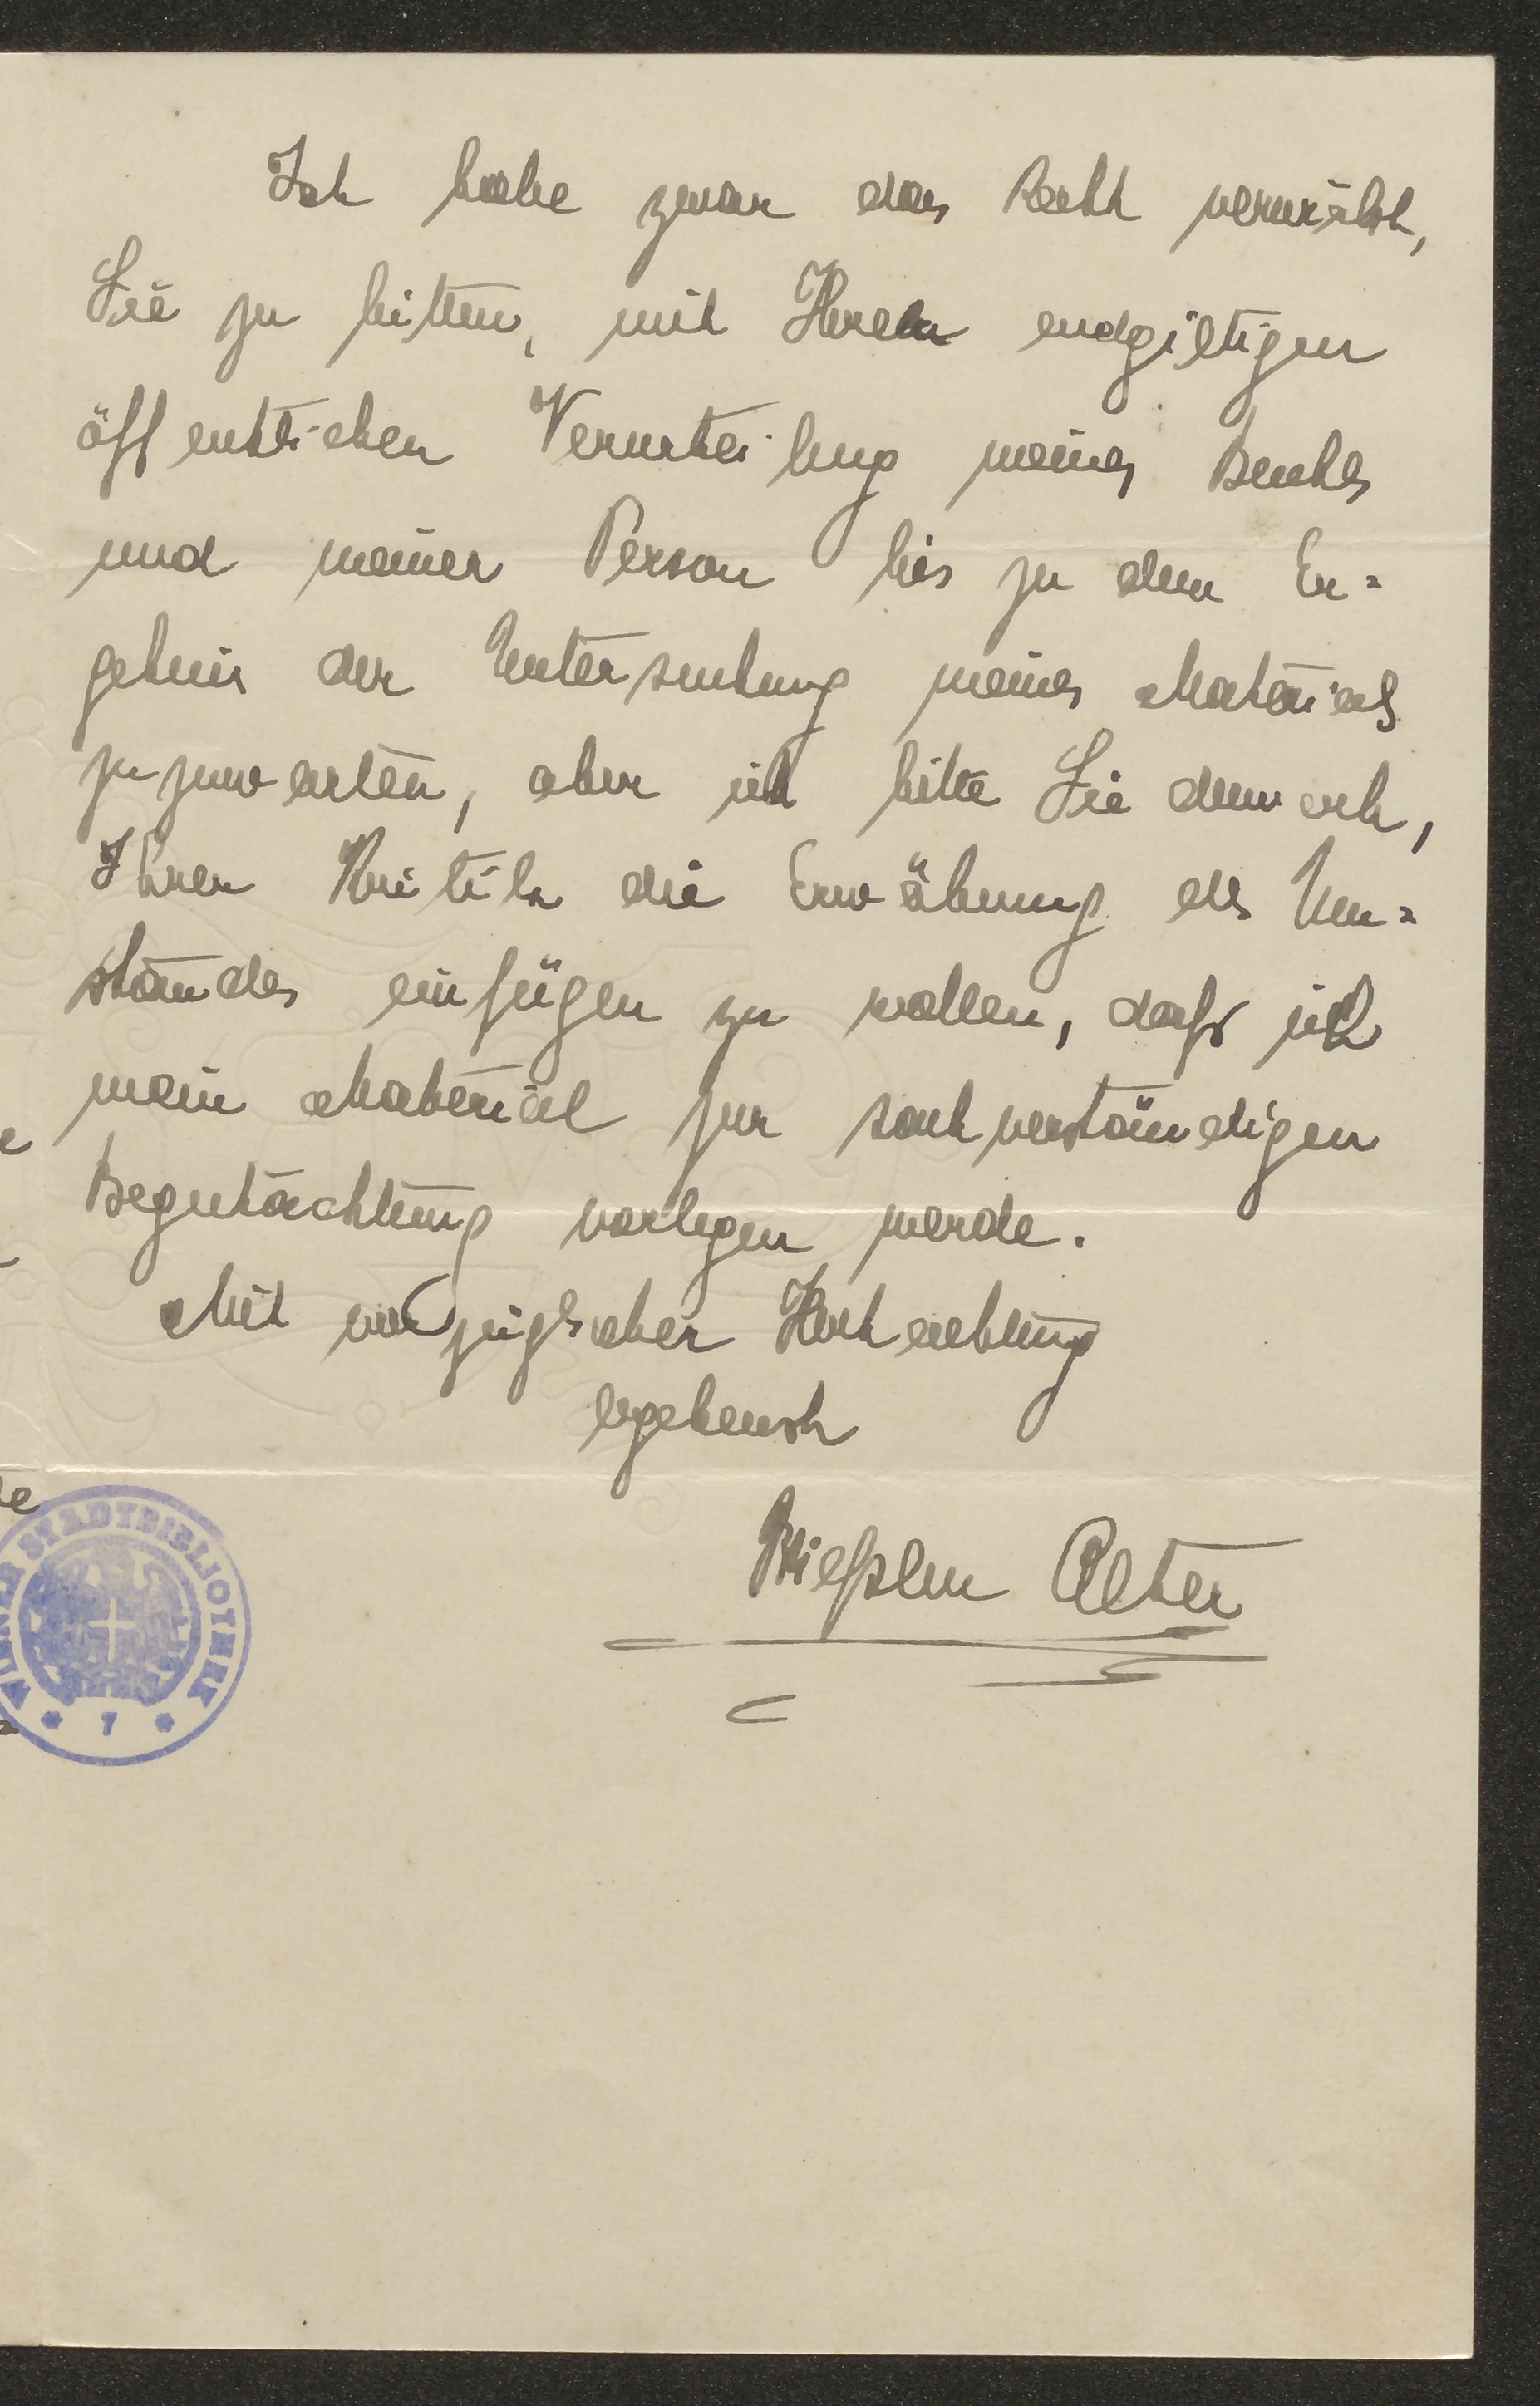 Ich habe zwar das Recht verwirkt,
Sie zu bitten, mit Ihrer endgiltigen
öffentlichen Verurteilung meines Buches
und meiner Person bis zu dem Er=
gebnis der Untersuchung meines Materials
zuzuwarten, aber ich bitte Sie dennoch,
Ihrer Kritik die Erwähnung des Um=
standes einfügen zu wollen, dass ich
mein Material zur sachverständigen
Begutachtung vorlegen werde.
Mit vorzüglicher Hochachtung
ergebenst
Alter
WIENER STADTBIBLIOTHEK
* 7 *